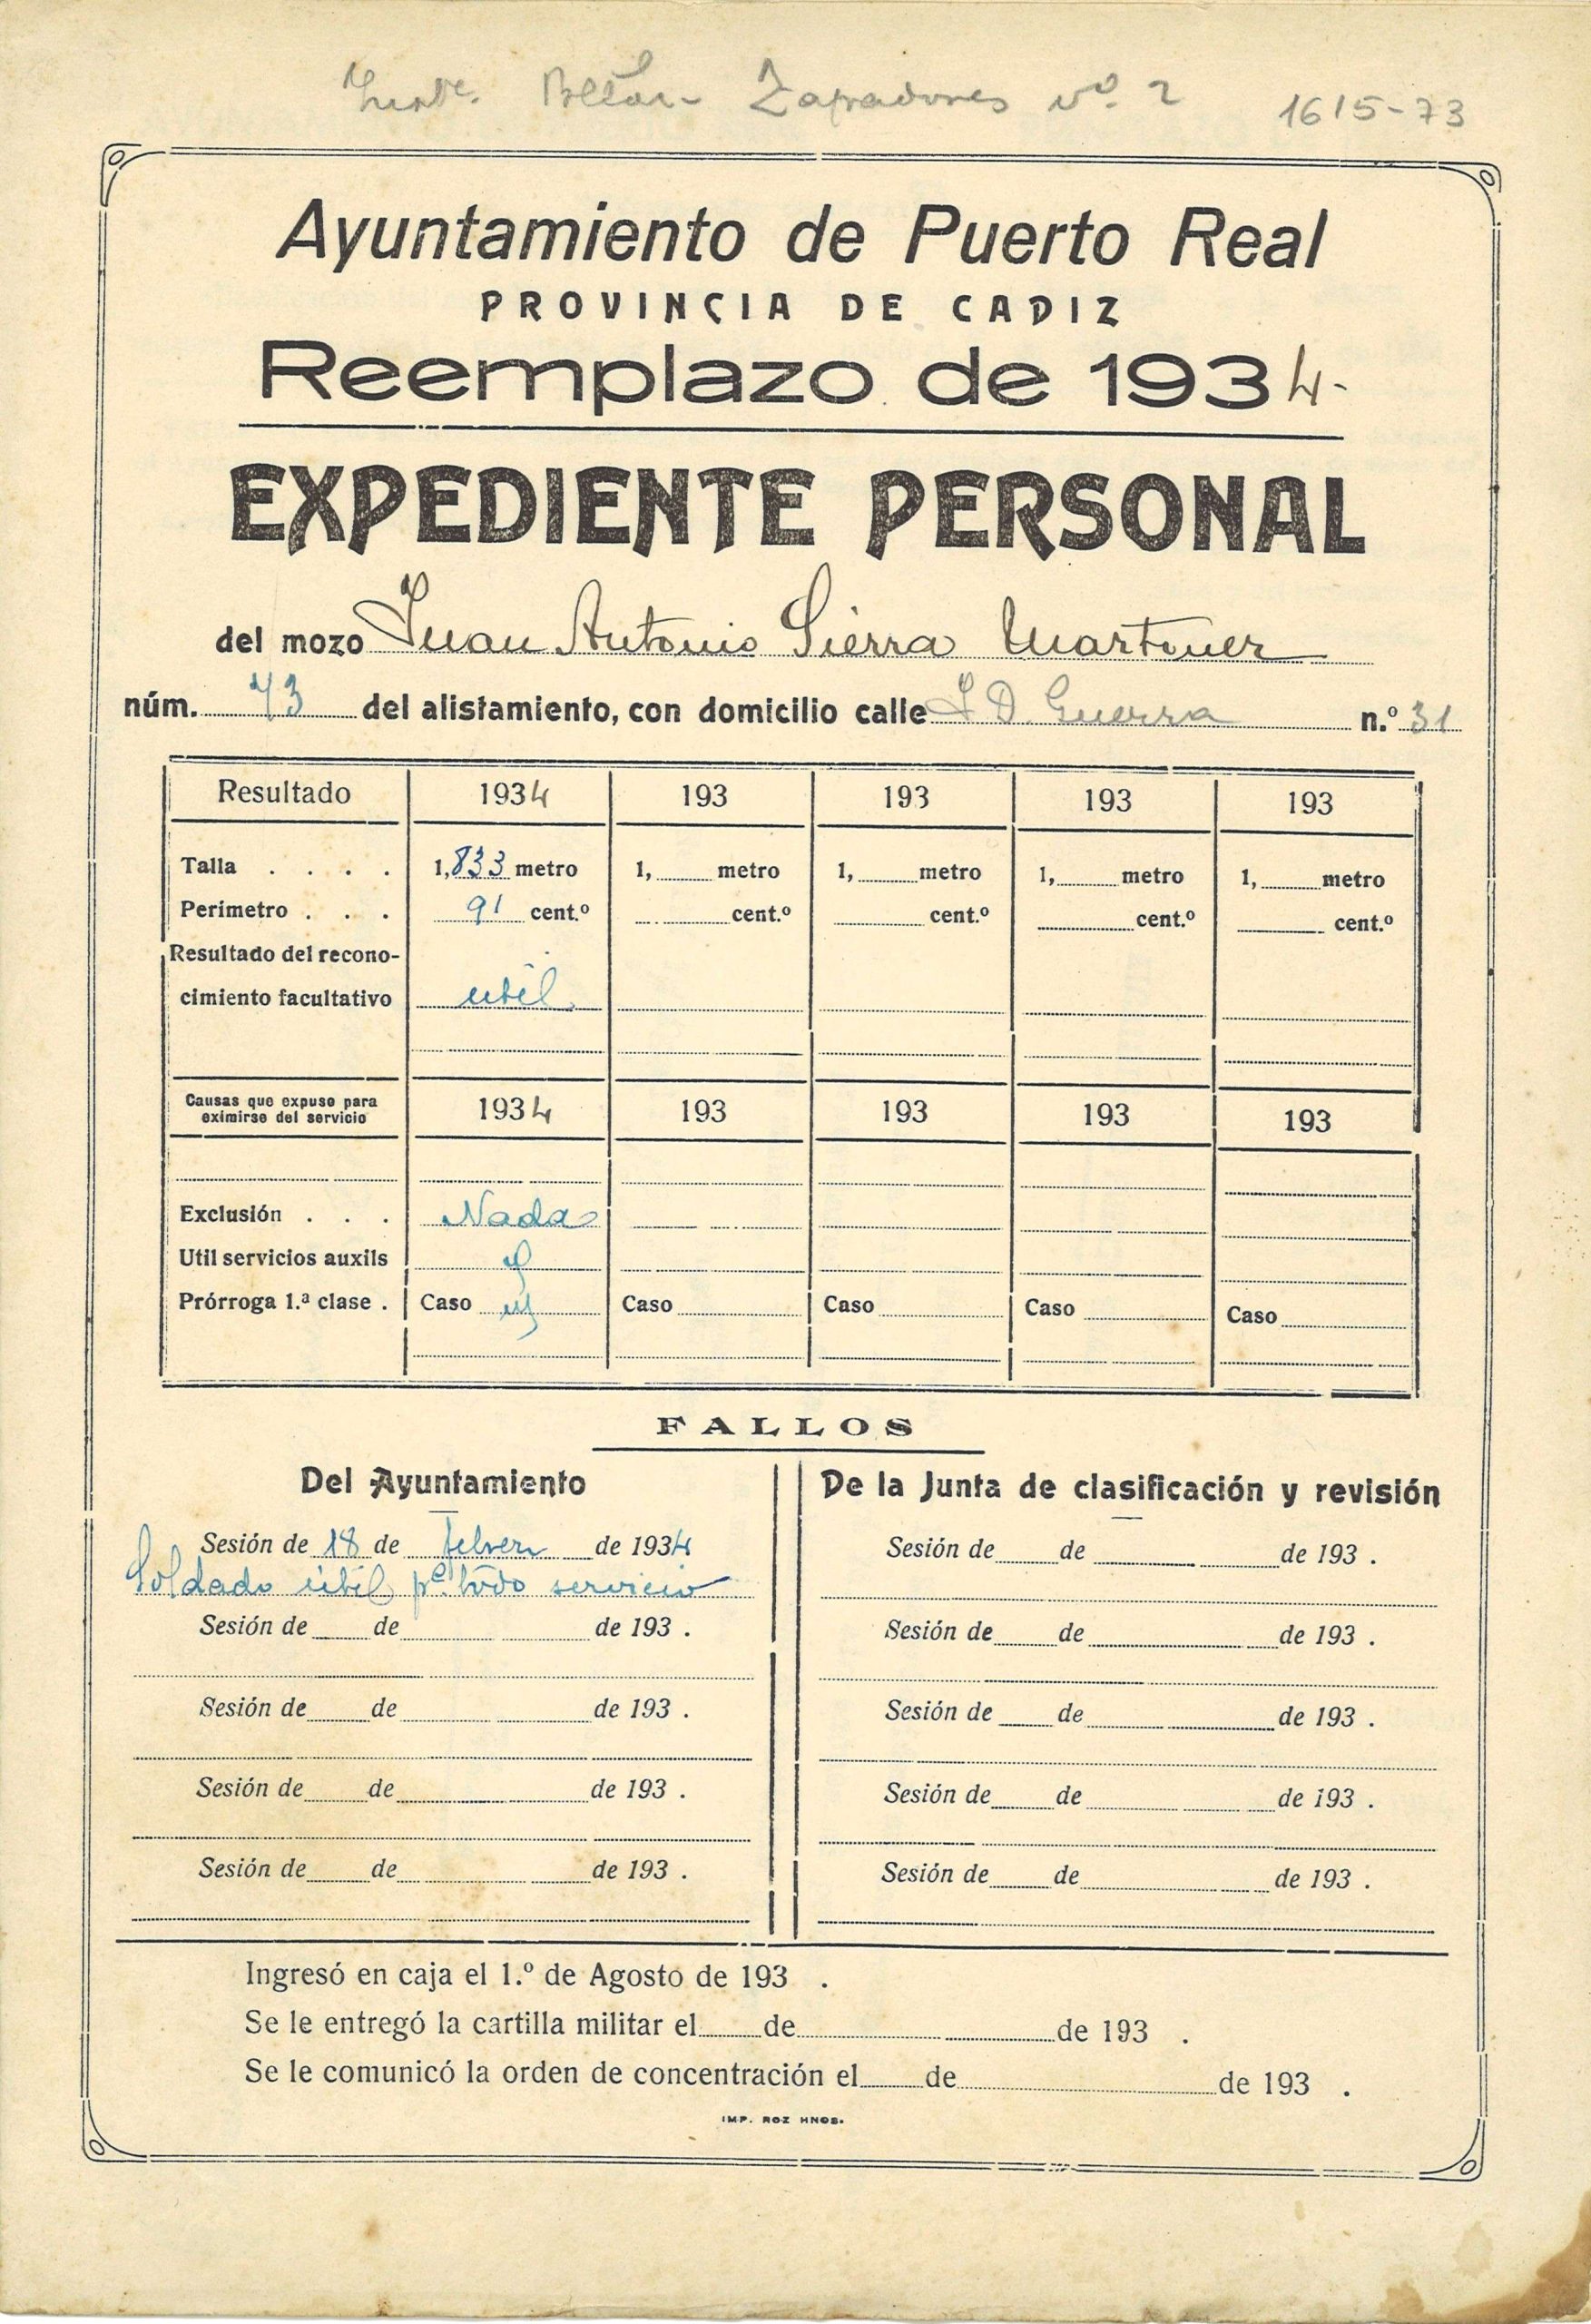 Zapadores nº. 2 1615-73
Ayuntamiento de Puerto Real
PROVINCIA DE CADIZ
Reemplazo de 1934-
EXPEDIENTE PERSONAL
del mozo Juan Antonio Sierra Martinez
núm. 73 del alistamiento, con domicilio calle F D. Guerra n.º 31
Resultado 1934 193 193 193 193
Talla . . . . 1,833 metro 1, metro 1, metro 1, metro 1, metro
Perimetro . . . 91 cent.º cent.º cent.º cent.º cent.º
Resultado del recono-
cimiento facultativo util
Causas que expuso para
eximirse del servicio 1934 193 193 193 193
Exclusión . . . Nada
Util servicios auxils
Prórroga 1.ª clase . Caso Caso Caso Caso Caso
FALLOS
Del Ayuntamiento
Sesión de 18 de febrero de 1934
Soldado útil pª todo servicio
Sesión de de de 193 .
Sesión de de de 193 .
Sesión de de de 193 .
Sesión de de de 193 .
De la Junta de clasificación y revisión
Sesión de de de 193 .
Sesión de de de 193 .
Sesión de de de 193 .
Sesión de de de 193 .
Sesión de de de 193 .
Ingresó en caja el 1.º de Agosto de 193 .
Se le entregó la cartilla militar el de de 193 .
Se le comunicó la orden de concentración el de de 193 .
IMP. ROZ HNOS.